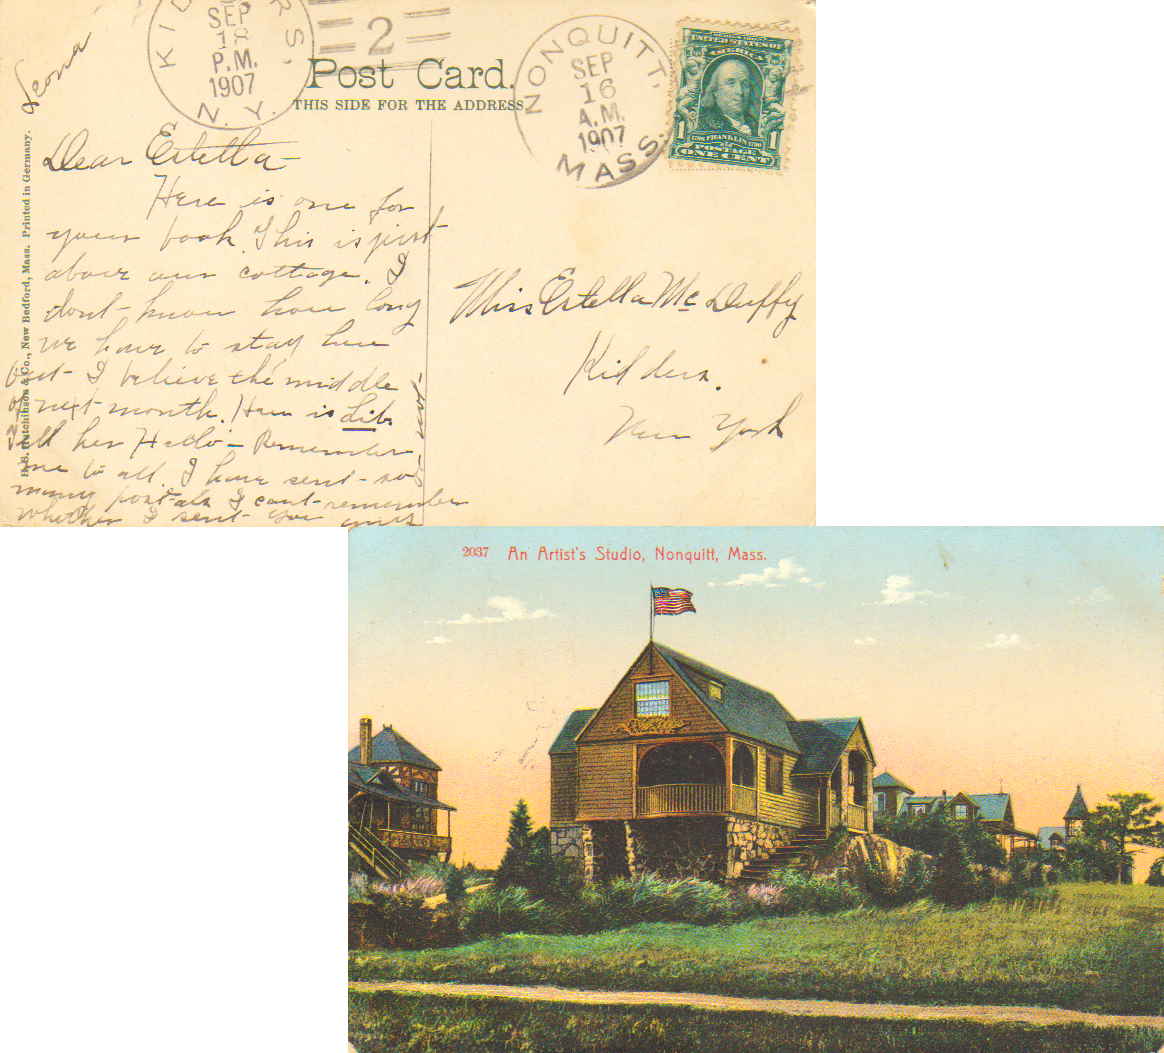 KIDDERS,
SEP
18
P.M.
1907
N. Y.
2
Post Card.
THIS SIDE FOR THE ADDRESS
NONQUITT,
SEP
16
A.M.
1907
MASS.
UNITED STATES OF
AMERICA
1 FRANKLIN 1
POSTAGE
ONE CENT
Leona
H. S. Hutchinson & Co., New Bedford, Mass. Printed in Germany.
Dear Estella-
Here is one for
your book. This is just
above our cottage. I
dont know how long
we have to stay here
but I believe the middle
of next month. How is Lib.
Tell her Hello - Remember
me to all. I have sent so
many postals I cant remember
whether I sent you any
or not-
Miss Estella Mc Duffy
Kidders.
New York
2037 An Artist's Studio, Nonquitt, Mass.